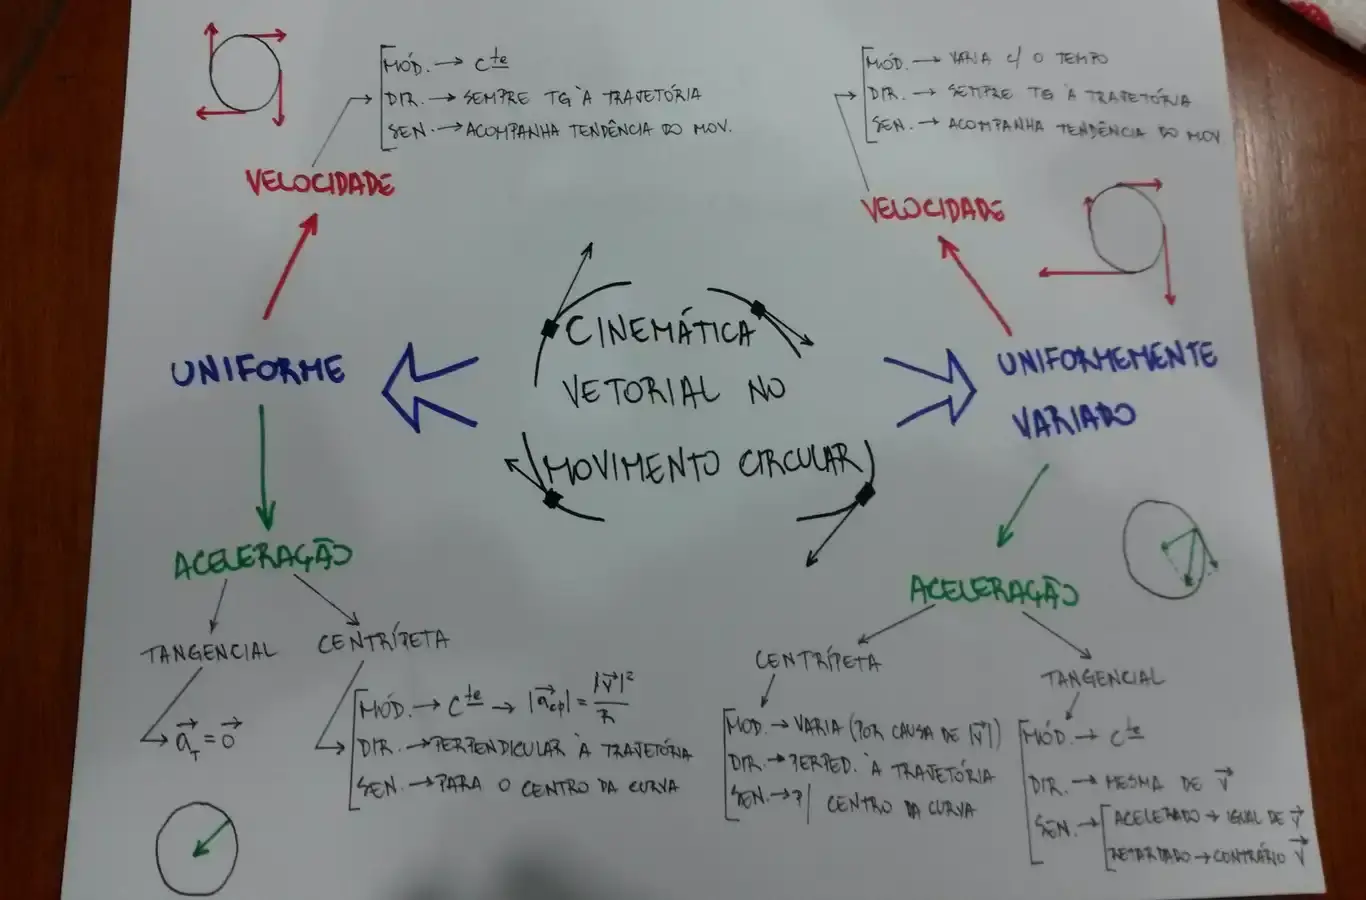 CINEMÁTICA
VETORIAL NO
MOVIMENTO CIRCULAR
UNIFORME
VELOCIDADE
MÓD. → Cte
DIR. → SEMPRE TG À TRAJETÓRIA
SEN. → ACOMPANHA TENDÊNCIA DO MOV.
ACELERAÇÃO
TANGENCIAL
a⃗T = 0⃗
CENTRÍPETA
MÓD. → Cte → |a⃗cp| = |v⃗|²/R
DIR. → PERPENDICULAR À TRAJETÓRIA
SEN. → PARA O CENTRO DA CURVA
UNIFORMEMENTE
VARIADO
VELOCIDADE
MÓD. → VARIA C/ O TEMPO
DIR. → SEMPRE TG À TRAJETÓRIA
SEN. → ACOMPANHA TENDÊNCIA DO MOV
ACELERAÇÃO
CENTRÍPETA
MOD. → VARIA (POR CAUSA DE |v⃗|)
DIR. → PERPED. À TRAJETÓRIA
SEN. → P/ CENTRO DA CURVA
TANGENCIAL
MÓD. → Cte
DIR. → MESMA DE v⃗
SEN. → ACELERADO → IGUAL DE v⃗
RETARDADO → CONTRÁRIO v⃗